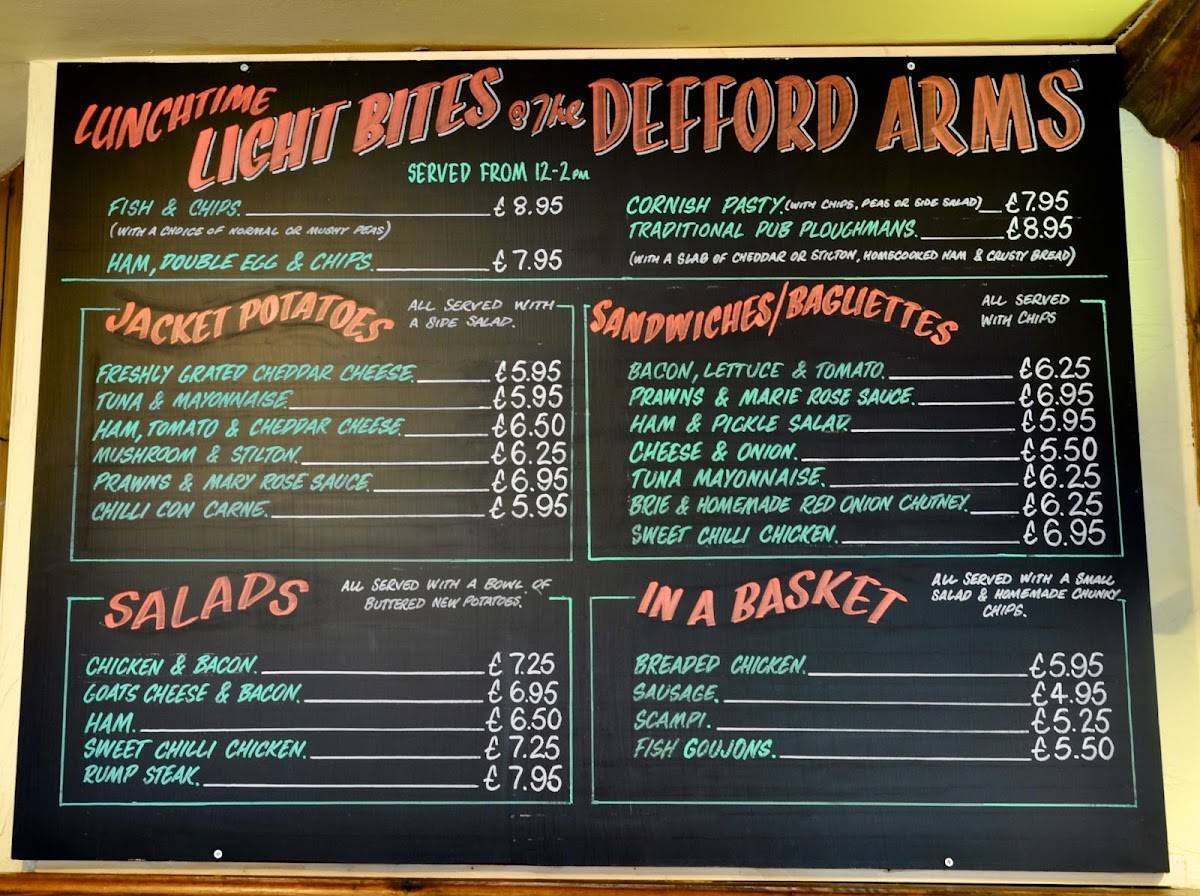 LUNCHTIME LIGHT BITES @ The DEFFORD ARMS
SERVED FROM 12-2PM
FISH & CHIPS. £8.95
(WITH A CHOICE OF NORMAL OR MUSHY PEAS)
HAM, DOUBLE EGG & CHIPS. £7.95
CORNISH PASTY. (WITH CHIPS, PEAS OR SIDE SALAD) £7.95
TRADITIONAL PUB PLOUGHMANS. £8.95
(WITH A SLAB OF CHEDDAR OR STILTON, HOMECOOKED HAM & CRUSTY BREAD)
JACKET POTATOES
ALL SERVED WITH
A SIDE SALAD.
FRESHLY GRATED CHEDDAR CHEESE. £5.95
TUNA & MAYONNAISE. £5.95
HAM, TOMATO & CHEDDAR CHEESE. £6.50
MUSHROOM & STILTON. £6.25
PRAWNS & MARY ROSE SAUCE. £6.95
CHILLI CON CARNE. £5.95
SANDWICHES/BAGUETTES
ALL SERVED
WITH CHIPS
BACON, LETTUCE & TOMATO. £6.25
PRAWNS & MARIE ROSE SAUCE. £6.95
HAM & PICKLE SALAD. £5.95
CHEESE & ONION. £5.50
TUNA MAYONNAISE. £6.25
BRIE & HOMEMADE RED ONION CHUTNEY. £6.25
SWEET CHILLI CHICKEN. £6.95
SALADS
ALL SERVED WITH A BOWL OF
BUTTERED NEW POTATOES.
CHICKEN & BACON. £7.25
GOATS CHEESE & BACON. £6.95
HAM. £6.50
SWEET CHILLI CHICKEN. £7.25
RUMP STEAK. £7.95
IN A BASKET
ALL SERVED WITH A SMALL
SALAD & HOMEMADE CHUNKY
CHIPS.
BREADED CHICKEN. £5.95
SAUSAGE. £4.95
SCAMPI. £5.25
FISH GOUJONS. £5.50